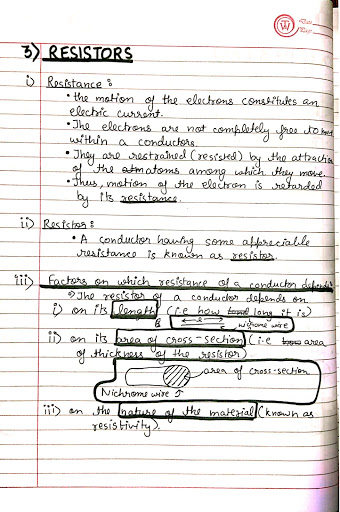 3) RESISTORS
i) Resistance :
• the motion of the electrons constitutes an
electric current.
• The electrons are not completely free to
within a conductors.
• They are restrained (resisted) by the attraction
of the atoms among which they move.
• Thus, motion of the electron is retarded
by its resistance.
ii) Resistor :
• A conductor having some appreciable
resistance is known as resistor.
iii) Factors on which resistance of a conductor depends
The resistor of a conductor depends on
i) on its length (i.e how long it is)
nichrome wire
ii) on its area of cross-section (i.e area
of thickness of the resistor)
area of cross-section
Nichrome wire
iii) on the nature of the material (known as
resistivity).